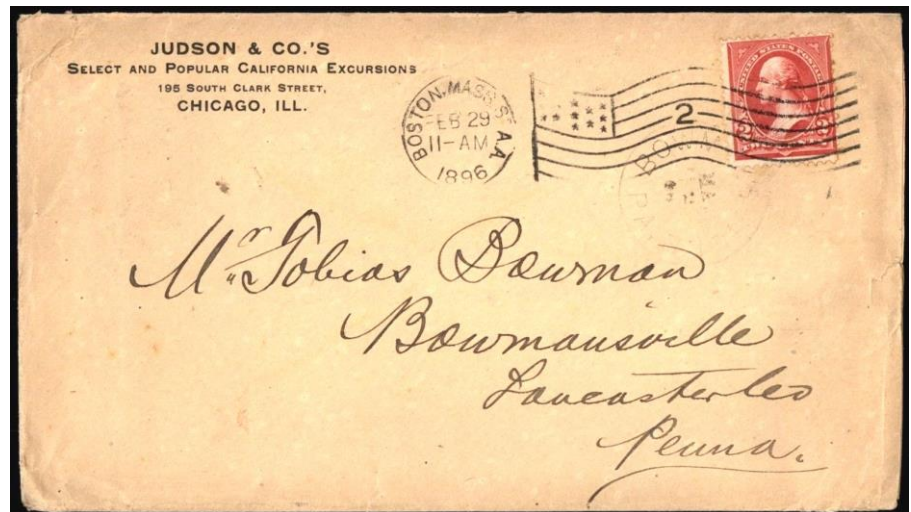 JUDSON & CO.'S
SELECT AND POPULAR CALIFORNIA EXCURSIONS
195 SOUTH CLARK STREET,
CHICAGO, ILL.
BOSTON, MASS. A.A
FEB 29
11-AM
1896
2
UNITED STATES POSTAGE
2 2
BOWM
PA
Mr. Tobias Bowman
Bowmansville
Lancaster Co
Penna.